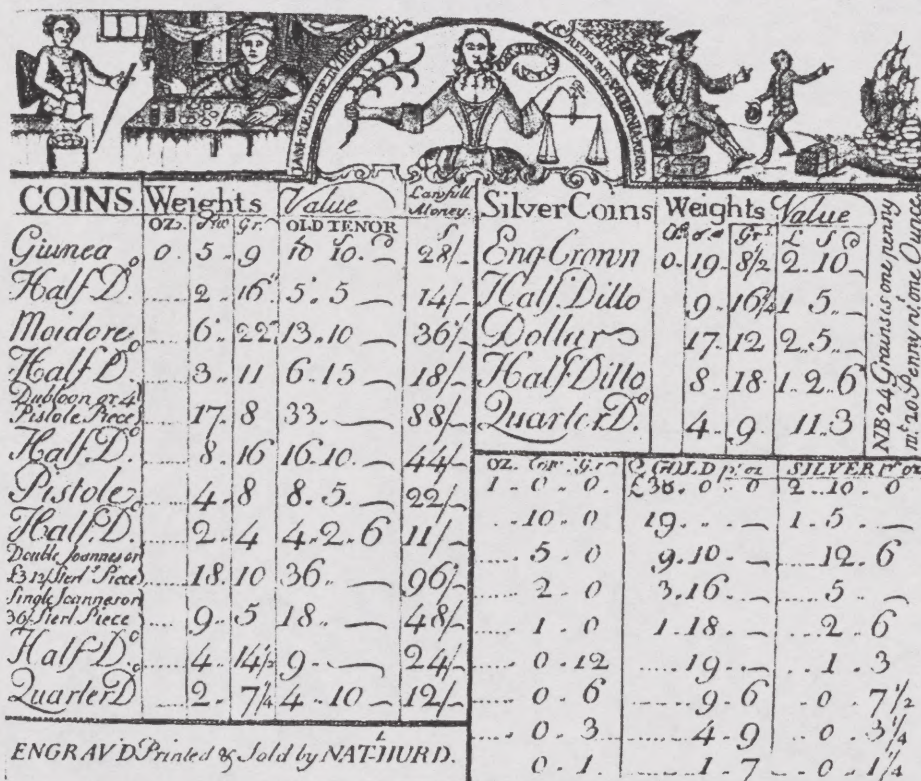 IAM REDIT ET VIRGO
REDEUNT SATURNIA REGNA
COINS. Weights Value Lawfull Money.
OZ. Pw Gr. OLD TENOR S
Guinea 0. 5 .. 9 10 10. — 28/-
Half Do. .... 2 .. 16 5. 5 — 14/-
Moidore .... 6. 22 13..10 36/-
Half Do. .... 3 .. 11 6.15 — 18/-
Dubloon or 4
Pistole Piece .... 17. 8 33. — 88/-
Half. Do. .... 8. 16 16.10. — 44/-
Pistole .... 4. 8 8. 5. — 22/-
Half. Do. .... 2. 4 4..2.. 6 11/-
Double Joannes or
£3 12/ Sterl. Piece .... 18. 10 36.. — 96/-
Single Joannes or
36/ Sterl Piece .... 9. 5 18.. — 48/-
Half Do. .... 4. 14½ 9.. — 24/-
Quarter D .... 2. 7¼ 4..10 — 12/-
ENGRAV'D Printed & Sold by NATL HURD.
Silver Coins Weights Value
Grs. L S D
Eng. Crown 0. 19. 8½ 2..10 —
Half. Ditto 9. 16¼ 1 5.. —
Dollar 17. 12 2..5.. —
Half Ditto 8. 18. 1..2..6
Quarter Do. 4.. 9. 11..3
NB 24 Grains is one penny
wt. 20 Penny wt. one Ounce
OZ. Gr. GOLD pr. oz SILVER pr. oz
1 .. 0 .. 0. £38. 0 .. 0 2..10.. 0
..10.. 0 19. .. — 1.. 5.. —
.... 5.. 0 9..10.. — ....12.. 6
.... 2.. 0 3.16.. — .... 5 .. —
.... 1.. 0 1..18.. — .... 2.. 6
.... 0..12 ....19.. — .... 1.. 3
.... 0.. 6 .... 9.. 6 .. 0.. 7½
.... 0.. 3 .... 4.. 9 .. 0.. 3¼
0.. 1. .... 1.. 7 .. 0.. 1¼